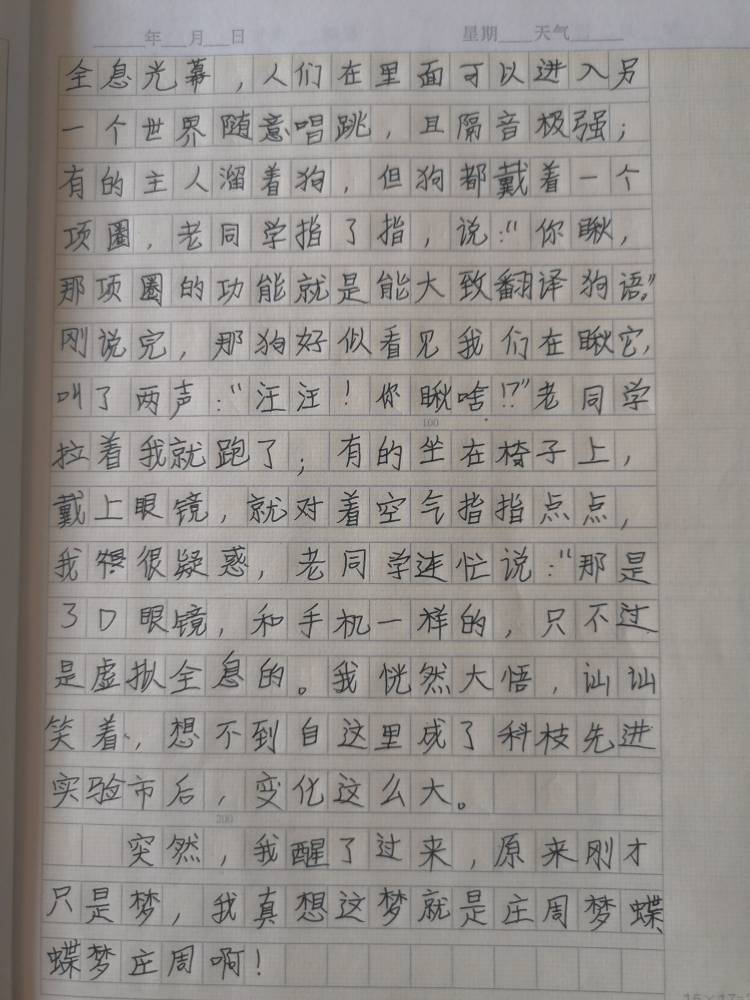 年 月 日 星期 天气
全息光幕，人们在里面可以进入另
一个世界随意唱跳，且隔音极强；
有的主人溜着狗，但狗都戴着一个
项圈，老同学指了指，说：“你瞅，
那项圈的功能就是能大致翻译狗语。”
刚说完，那狗好似看见我们在瞅它，
叫了两声：“汪汪！你瞅啥!?”老同学
100
拉着我就跑了；有的坐在椅子上，
戴上眼镜，就对着空气指指点点，
我很疑惑，老同学连忙说：“那是
3D眼镜，和手机一样的，只不过
是虚拟全息的。我恍然大悟，讪讪
笑着，想不到自这里成了科技先进
实验市后，变化这么大。
200
突然，我醒了过来，原来刚才
只是梦，我真想这梦就是庄周梦蝶、
蝶梦庄周啊！